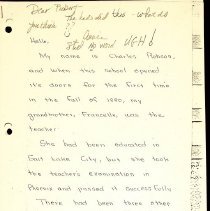 Dear
The kids did this - what do
you think?
still no word UGH!
Hello,
My name is Charles
and when this school opened
its doors for the first time
in the fall of 1880, my
grandmother, Francelle, was the
teacher.
She had been educated in
East Lake City, but she took
the teacher's examination in
Phoenix and passed it successfully
There had been three other